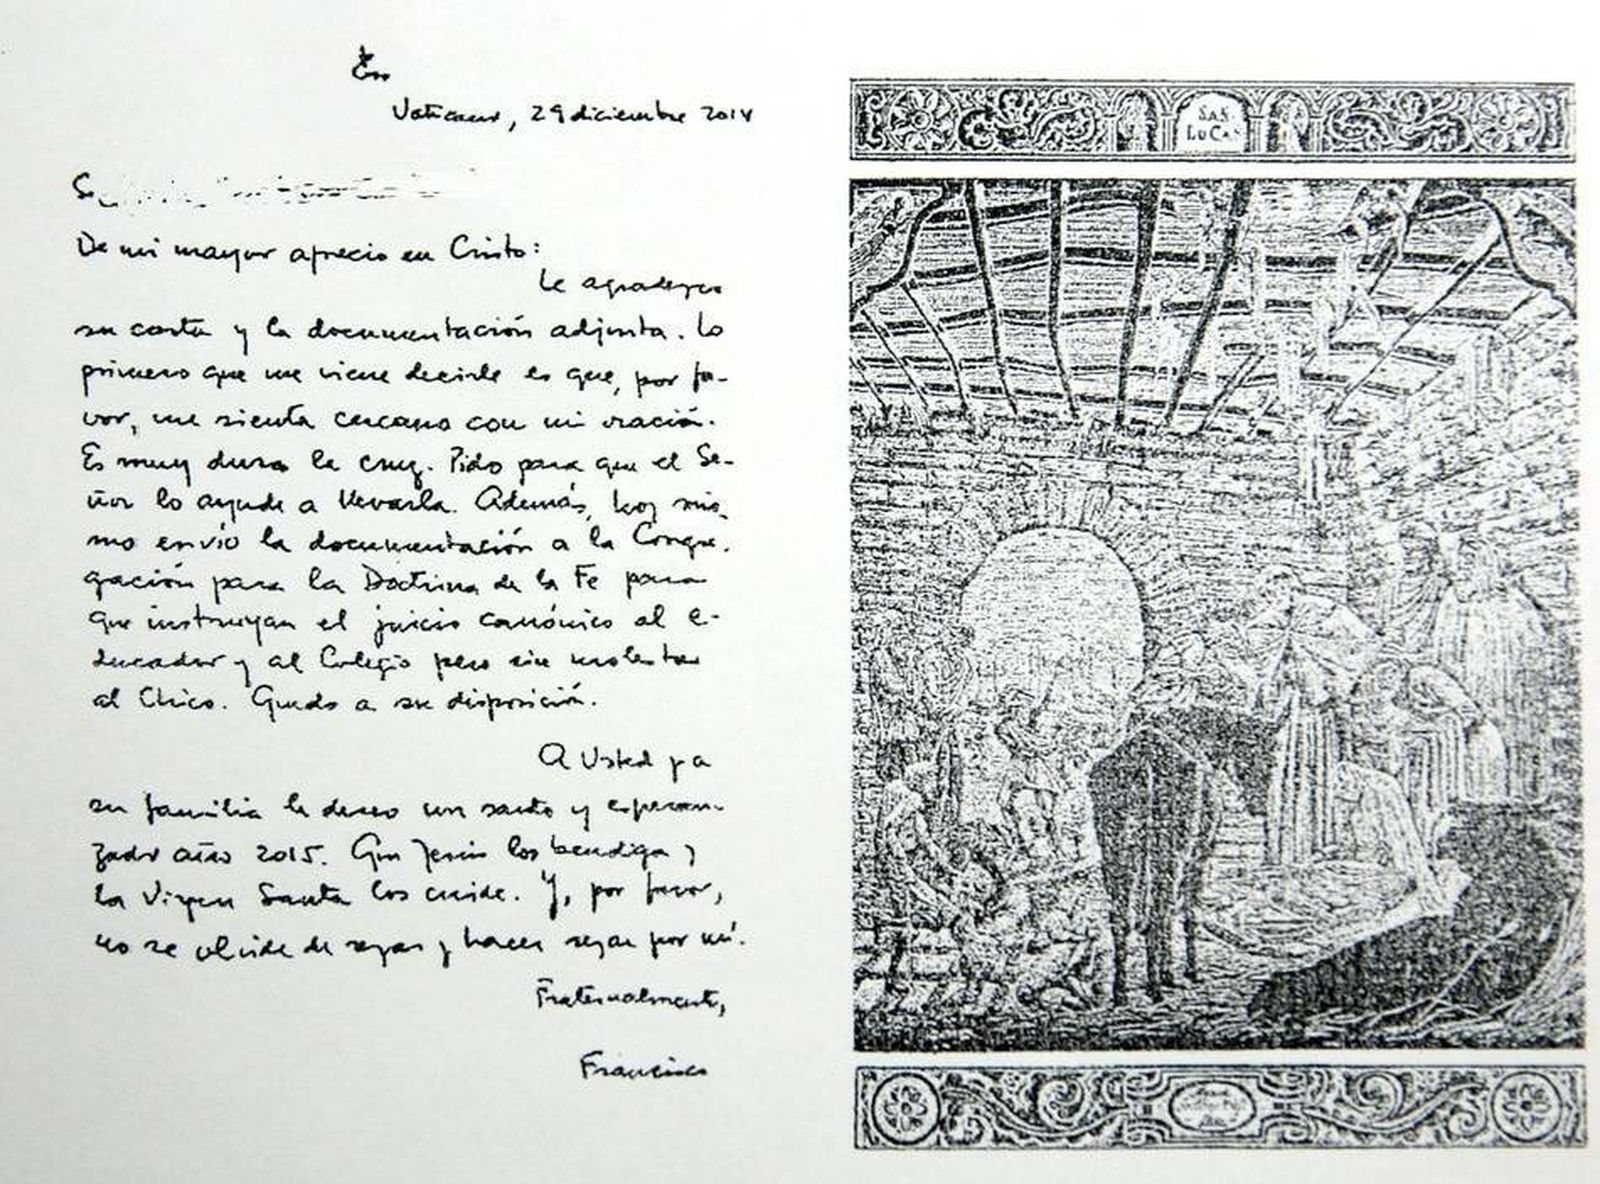 Vaticano, 29 diciembre 2014
De mi mayor aprecio en Cristo:
Le agradezco
su carta y la documentación adjunta. Lo
primero que me viene decirle es que, por fa-
vor, me sienta cercano con mi oración.
Es muy dura la cruz. Pido para que el Se-
ñor lo ayude a llevarla. Además, hoy mis-
mo envío la documentación a la Congre-
gación para la Doctrina de la Fe para
que instruyan el juicio canónico al e-
ducador y al Colegio pero sin molestar
al Chico. Quedo a su disposición.
A Usted y a
su familia le deseo un santo y esperan-
zador año 2015. Que Jesús los bendiga y
la Virgen Santa los cuide. Y, por favor,
no se olvide de rezar y hacer rezar por mí.
Fraternalmente,
Francisco
SAN
LUCAS